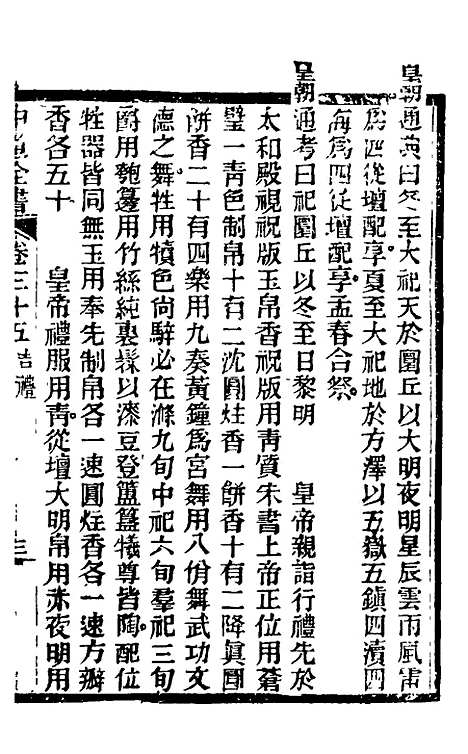 皇朝通典曰冬至大祀天於圜丘以大明夜明星辰雲雨風雷
爲四從壇配享夏至大祀地於方澤以五嶽五鎮四瀆四
海爲四從壇配享孟春合祭
皇朝通考曰祀圜丘以冬至日黎明 皇帝親詣行禮先於
太和殿視祝版玉帛香祝版用靑質朱書上帝正位用蒼
璧一靑色制帛十有二沈圓炷香一餅香十有二降眞圓
餅香二十有四樂用九奏黃鐘爲宮舞用八佾舞武功文
德之舞牲用犢色尙騂必在滌九旬中祀六旬羣祀三旬
爵用匏籩用竹絲純裏㯶以漆豆登簠簋犧尊皆陶配位
牲器皆同無玉用奉先制帛各一速圓炷香各一速方瓣
香各五十 皇帝禮服用靑從壇大明帛用赤夜明用
卷三十五 吉禮